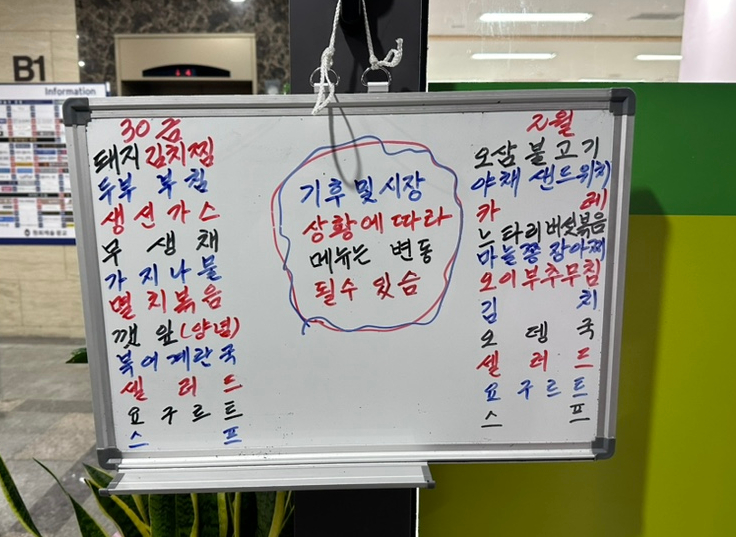 B1
Information
30 금
돼지 김치찜
두부 부침
생선가스
무 생 채
가지나물
멸치볶음
깻잎(양념)
북어계란국
셀 러 드
요구르트
스 프
기후 및 시장
상황에 따라
메뉴는 변동
될수 있슴
2 월
오삼불고기
야채 샌드위치
카 레
느타리버섯볶음
마늘쫑 장아찌
오이부추무침
김 치
오 뎅 국
셀 러 드
요구르트
스 프